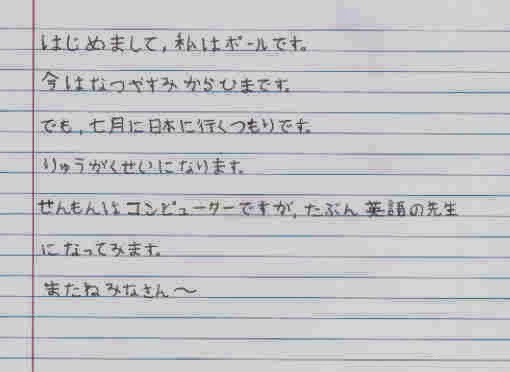 はじめまして，私はポールです。
今はなつやすみからひまです。
でも，七月に日本に行くつもりです。
りゅうがくせいになります。
せんもんはコンピューターですが，たぶん英語の先生
になってみます。
またねみなさん〜